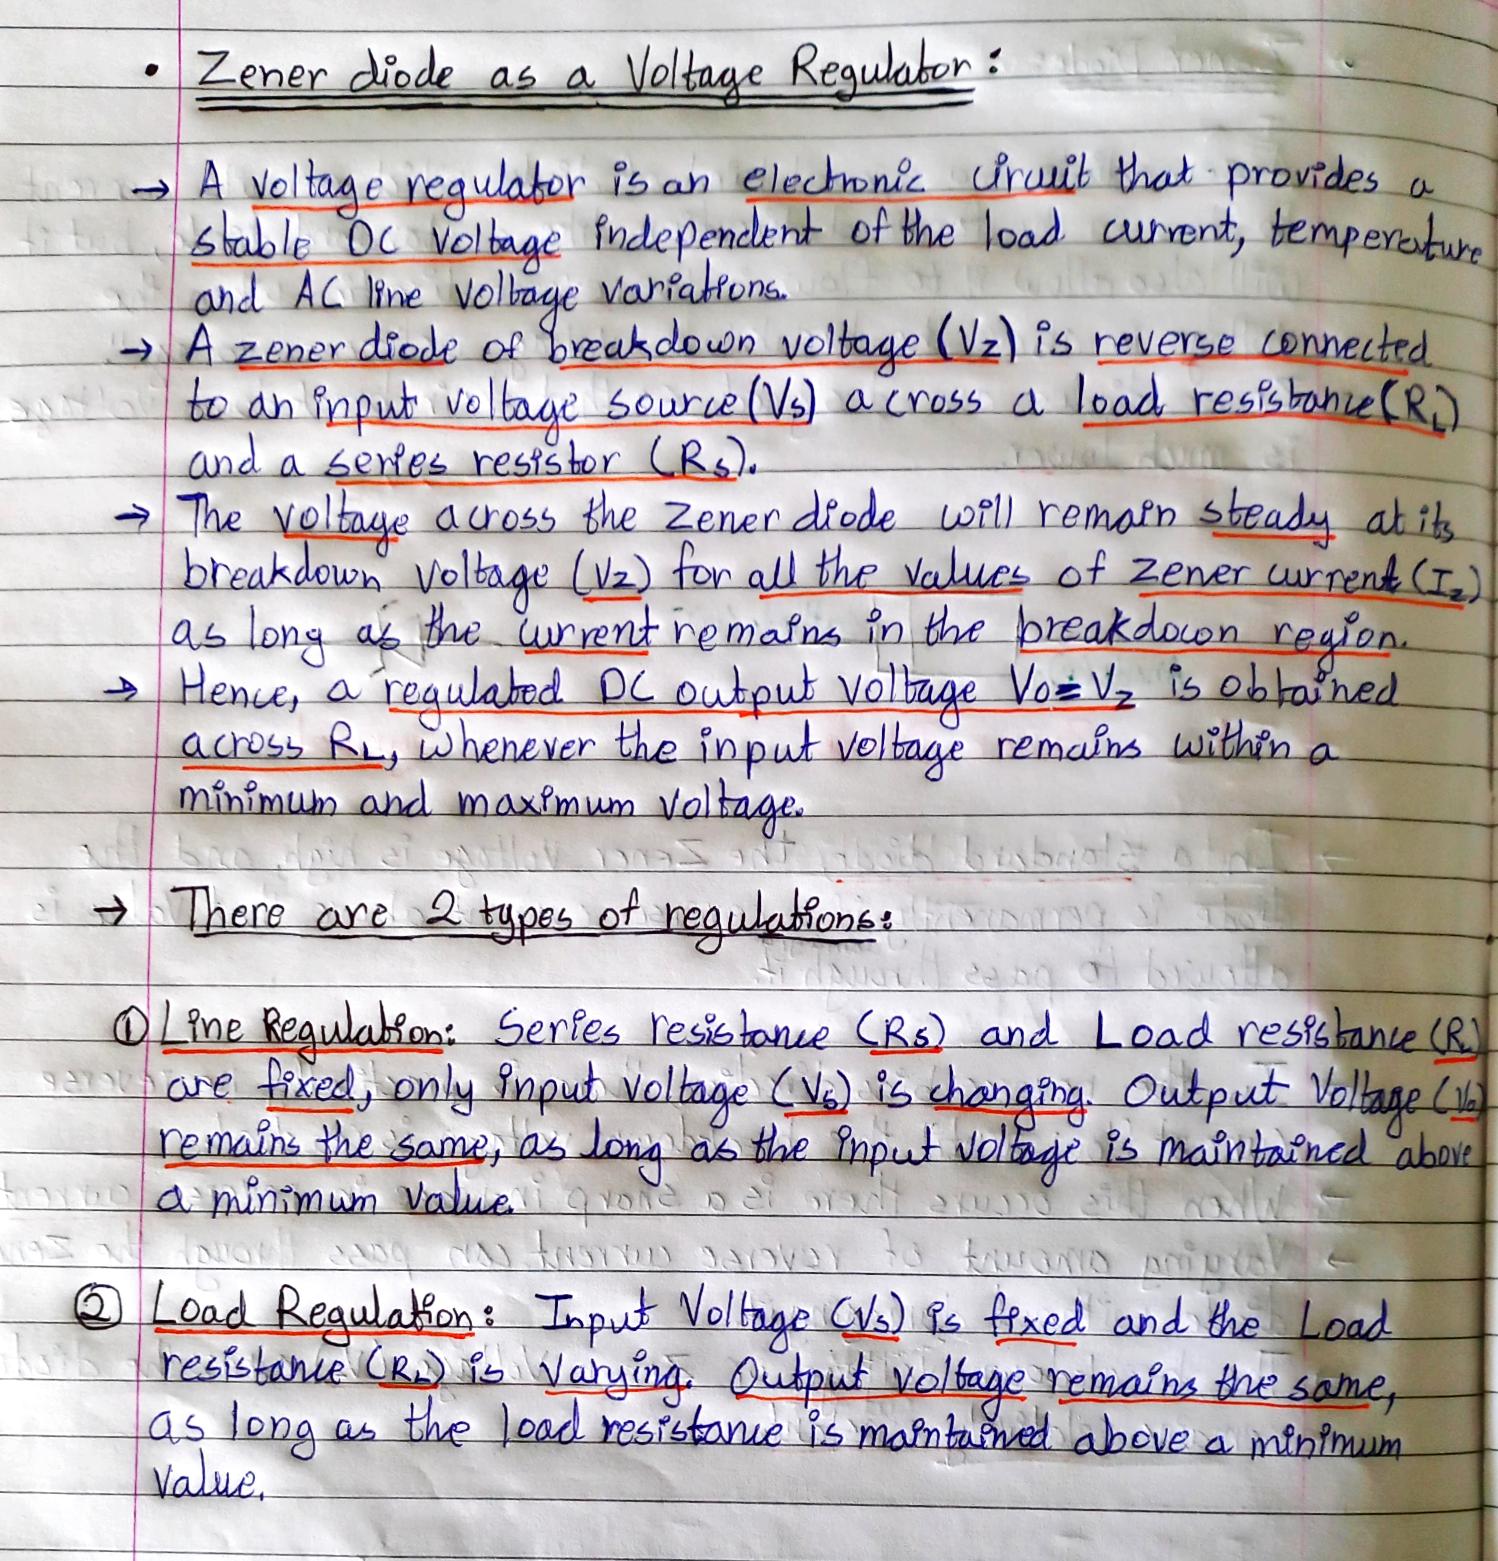 • Zener diode as a Voltage Regulator:
→ A voltage regulator is an electronic circuit that provides a
stable DC voltage independent of the load current, temperature
and AC line voltage variations.
→ A zener diode of breakdown voltage (Vz) is reverse connected
to an input voltage source (Vs) across a load resistance (RL)
and a series resistor (Rs).
→ The voltage across the zener diode will remain steady at its
breakdown voltage (Vz) for all the values of zener current (Iz)
as long as the current remains in the breakdown region.
→ Hence, a regulated DC output voltage Vo = Vz is obtained
across RL, whenever the input voltage remains within a
minimum and maximum voltage.
→ There are 2 types of regulations:
① Line Regulation: Series resistance (Rs) and Load resistance (RL)
are fixed, only input voltage (Vs) is changing. Output Voltage (Vo)
remains the same, as long as the input voltage is maintained above
a minimum value.
② Load Regulation: Input Voltage (Vs) is fixed and the Load
resistance (RL) is varying. Output voltage remains the same,
as long as the load resistance is maintained above a minimum
value.